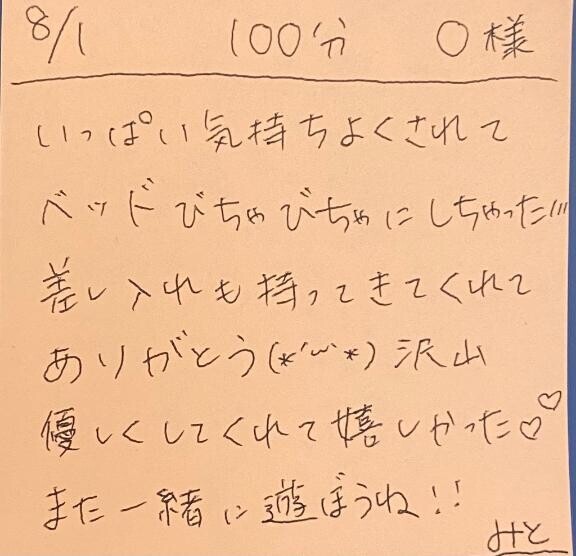 8/1 100分 〇様
いっぱい気持ちよくされて
ベッドびちゃびちゃにしちゃった///
差し入れも持ってきてくれて
ありがとう(*´꒳`*)沢山
優しくしてくれて嬉しかった♡♡
また一緒に遊ぼうね!!
みと